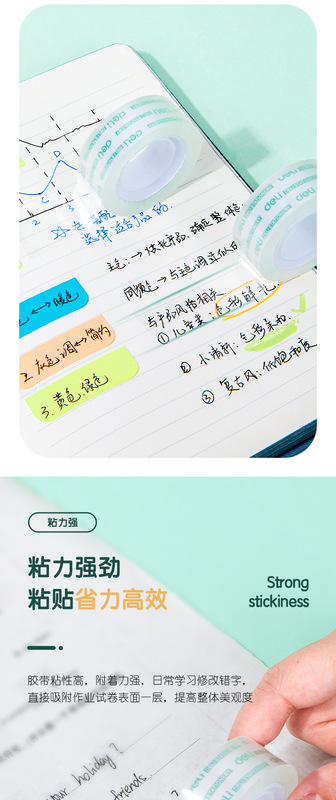 deli
deli
D
C
2
3
选择适合产品的
同频色→与主色调类似色
与产品风格相关
①儿童类:色彩鲜艳
←→暖色
②小清新:色彩柔和
2.灰色调↔简约
③复古风:低饱和度
3.黄色,绿色
粘力强
粘力强劲
粘贴省力高效
Strong
stickiness
胶带粘性高,附着力强,日常学习修改错字,
直接吸附作业试卷表面一层,提高整体美观度
your holiday?
friends.
deli